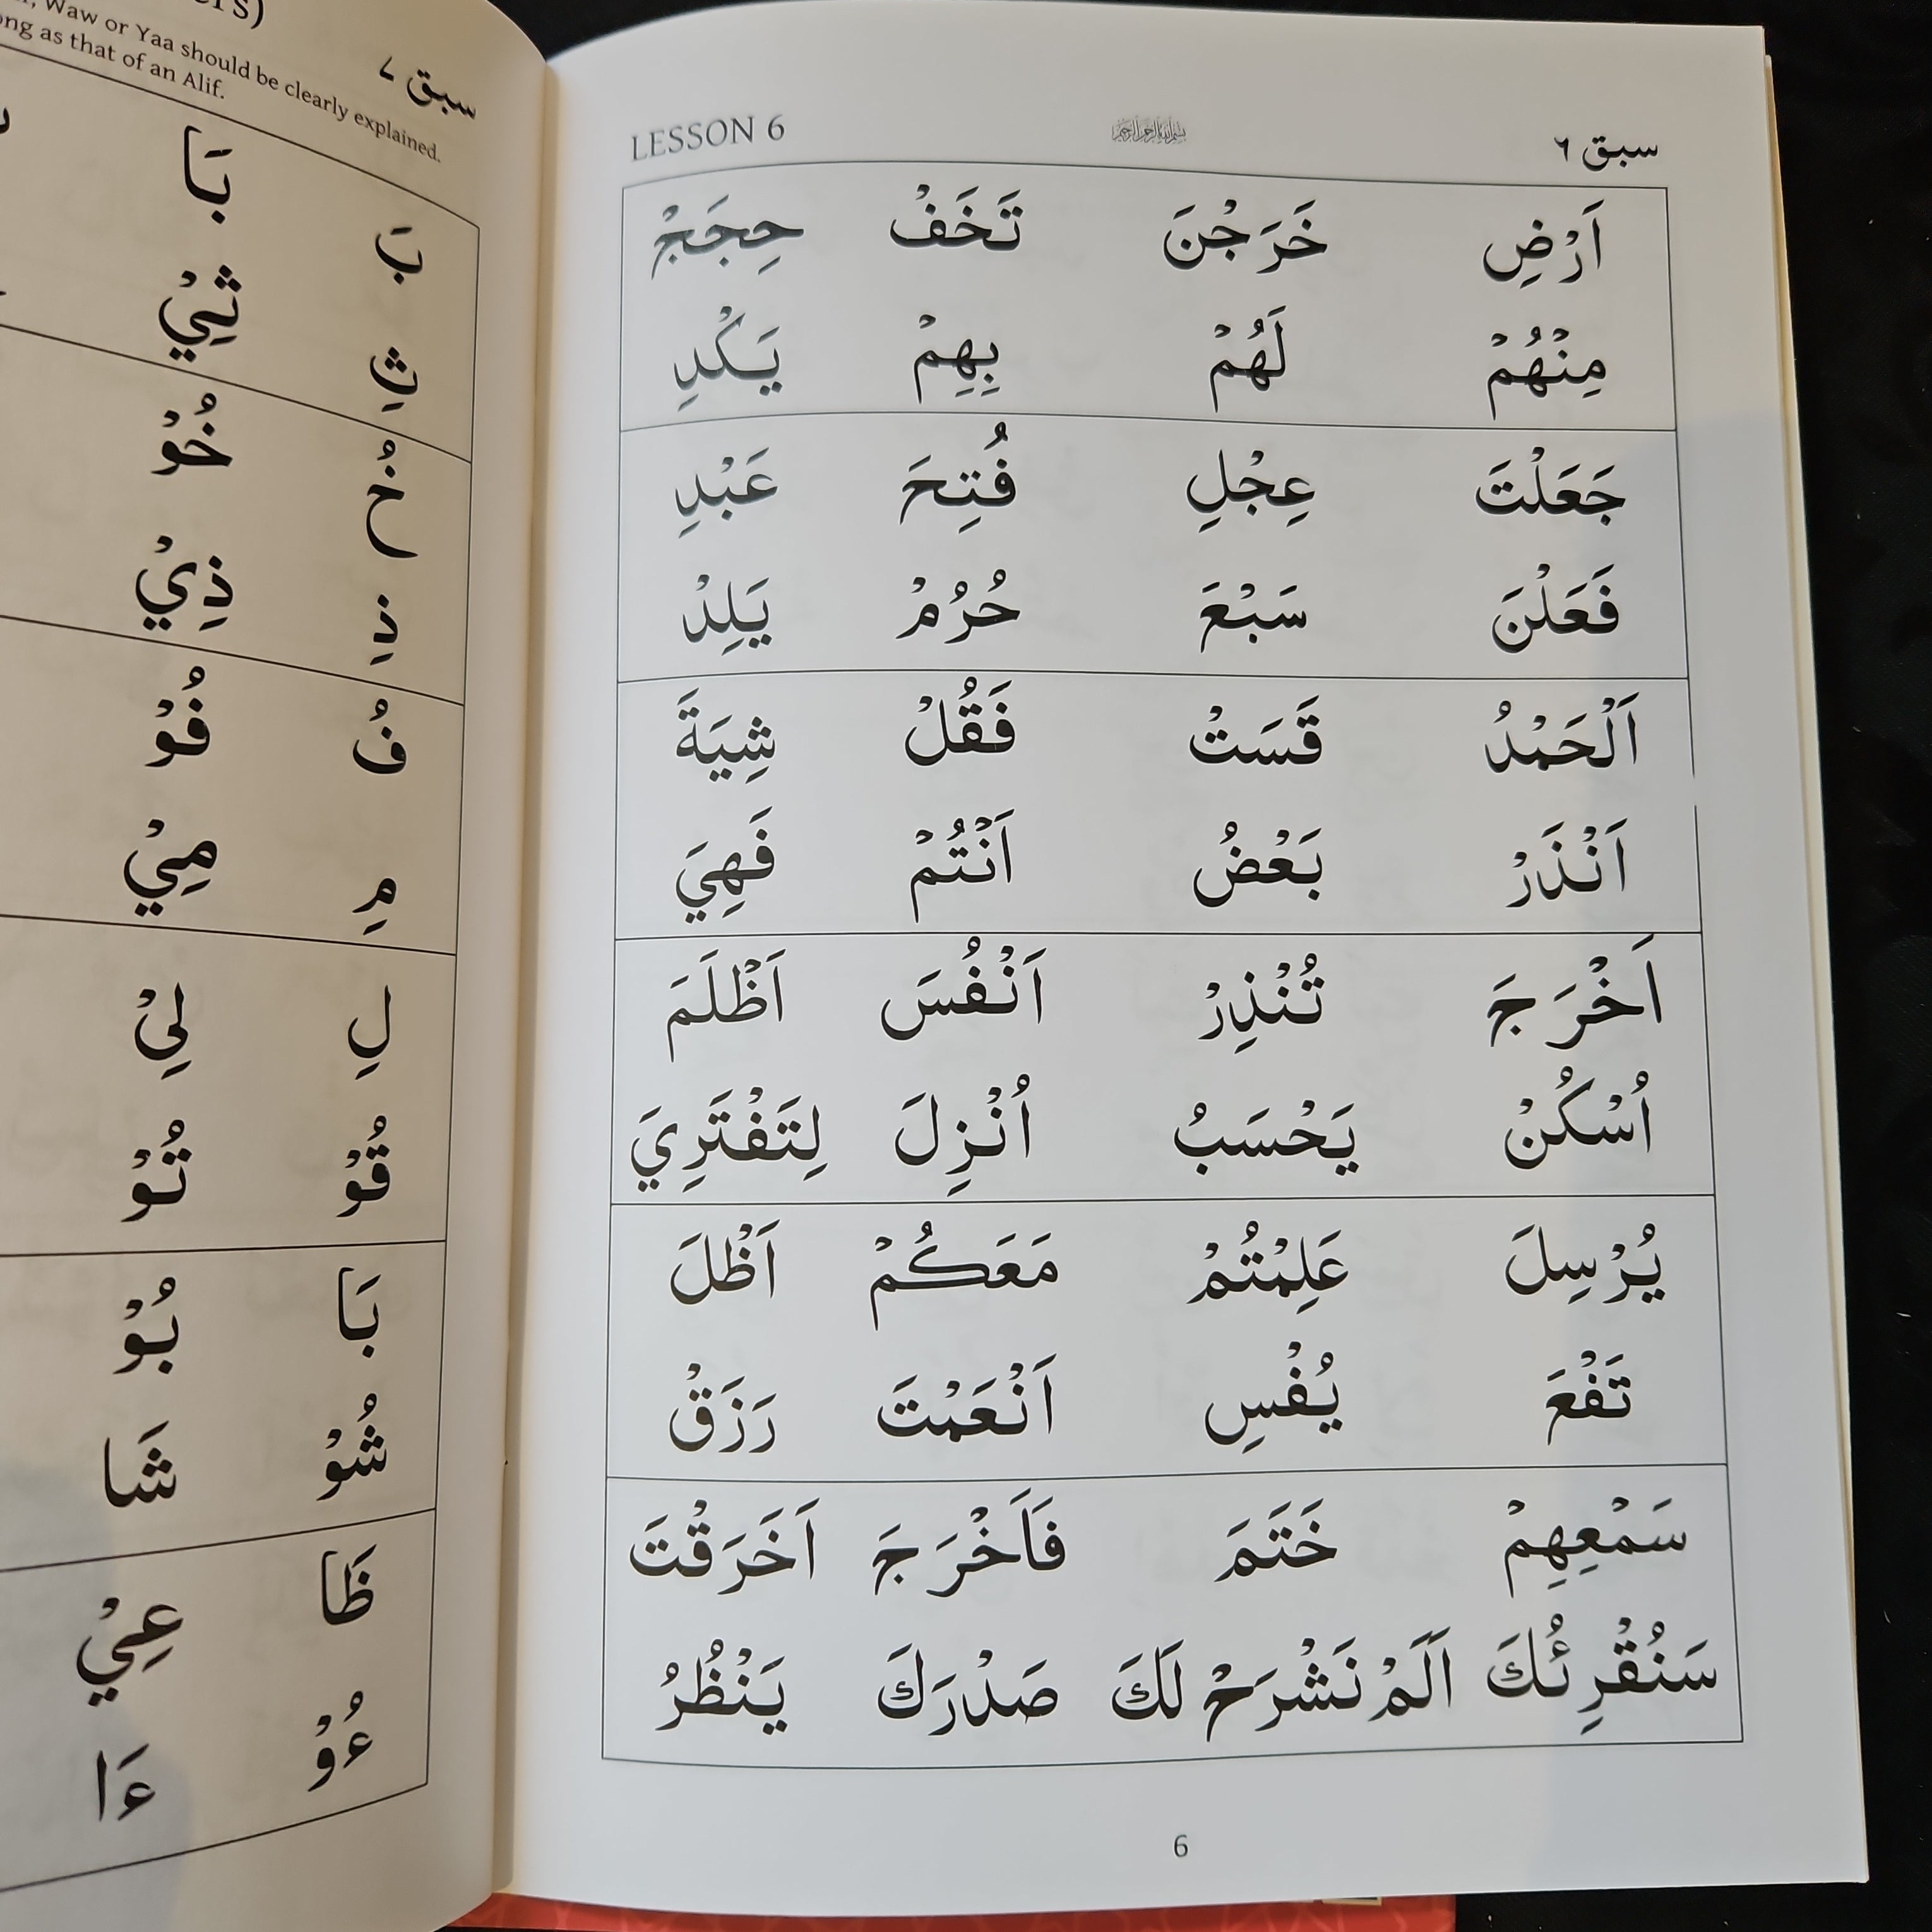 LESSON 6 سبق ٦
اَرْضِ خَرَجْنَ تَخَفْ حِجَجْ
مِنْهُمْ لَهُمْ بِهِمْ يَكْدِ
جَعَلْتَ عِجْلِ فُتِحَ عَبْدِ
فَعَلْنَ سَبْعَ حُرُمْ يَلِدْ
اَلْحَمْدُ قَسَتْ فَقُلْ شِيَةَ
اَنْذَرْ بَعْضُ اَنْتُمْ فَهِيَ
اَخْرَجَ تُنْذِرْ اَنْفُسَ اَظْلَمَ
اُسْكُنْ يَحْسَبُ اُنْزِلَ لِتَفْتَرِيَ
يُرْسِلَ عَلِمْتُمْ مَعَكُمْ اَظْلَ
تَفْعَ يُفْسِ اَنْعَمْتَ رَزَقْ
سَمْعِهِمْ خَتَمَ فَاَخْرَجَ اَخَرَقْتَ
سَنُقْرِئُكَ اَلَمْ نَشْرَحْ لَكَ صَدْرَكَ يَنْظُرُ
6
Waw or Yaa should be clearly explained.
as that of an Alif.
سبق ٧
بَ بَا
ثِ ثِيْ
خُ خُوْ
ذِ ذِيْ
فُ فُوْ
مِ مِيْ
لِ لِيْ
قُوْ تُوْ
بَا بُوْ
شُوْ شَا
ظَا عِيْ
ءُوْ ءَا